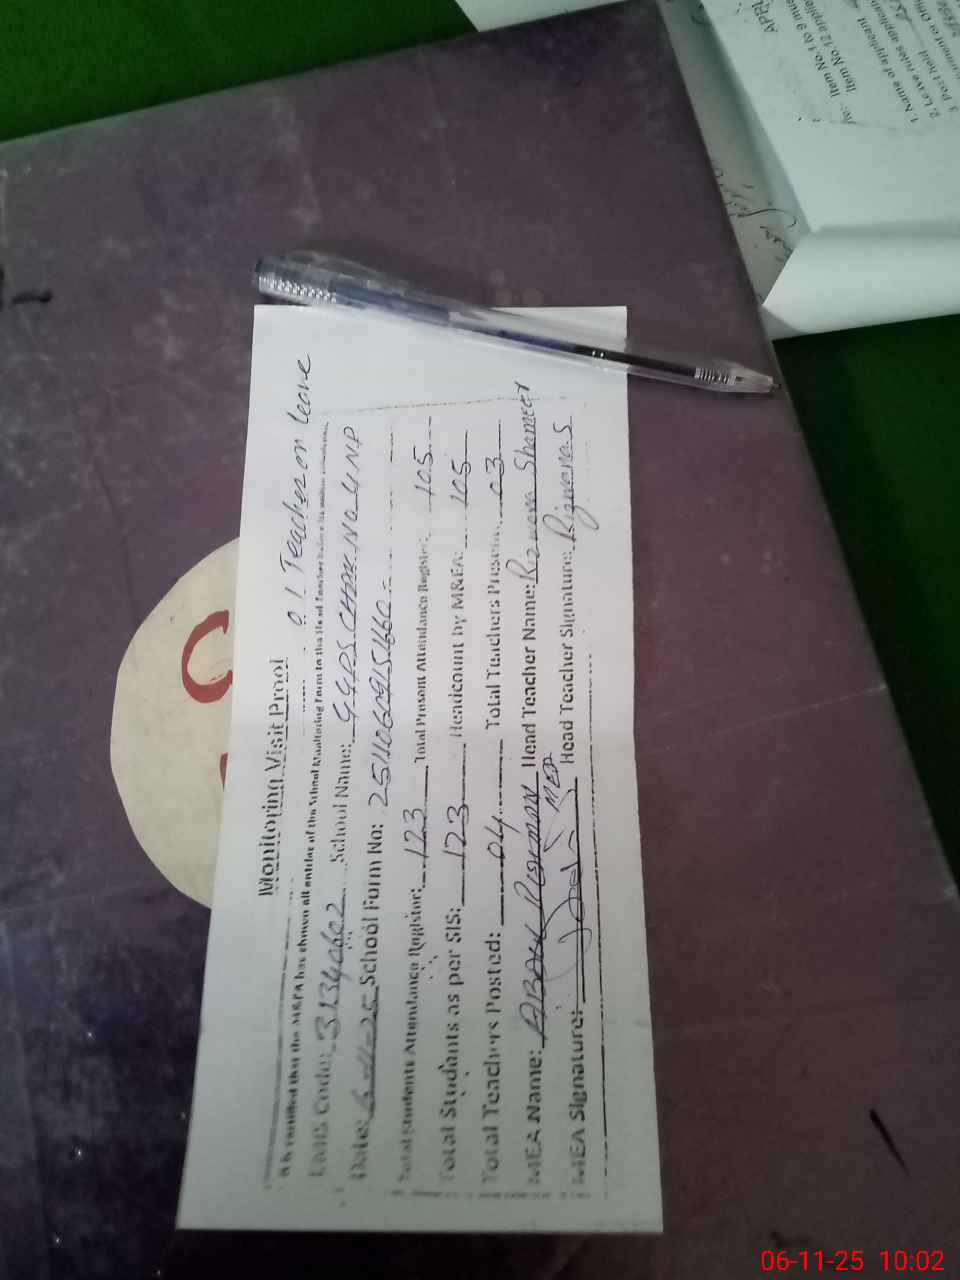 Monitoring Visit Proof
01 Teacher on leave
It is certified that the M&EA has shown all entries of the School Monitoring Form to the Head Teacher before its
EMIS Code: 31340602 School Name: GGPS CHAK NO. 4 NP
Date: 6-11-25 School Form No: 25110609151660
Total Students Attendance Register: 123 Total Present Attendance Register: 105
Total Students as per SIS: 123 Headcount by M&EA: 105
Total Teachers Posted: 04 Total Teachers Present: 03
MEA Name: Head Teacher Name: Rizwana Shameer
MEA Signature: MEA Head Teacher Signature: Rizwana.S
Item No.1 to 9 mus
Item No.12 applie
1. Name of applicant
2. Leave rules applican
3. Post held
06-11-25 10:02